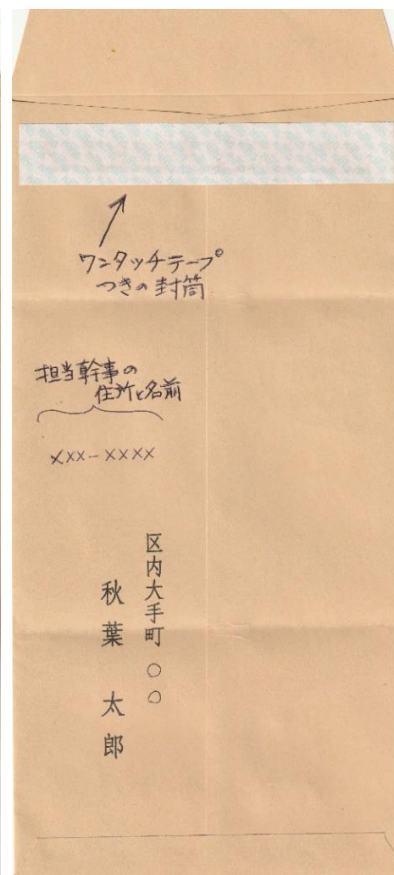 ワンタッチテープ
つきの封筒
担当幹事の
住所と名前
xxx-xxxx
区内大手町○○
秋葉太郎